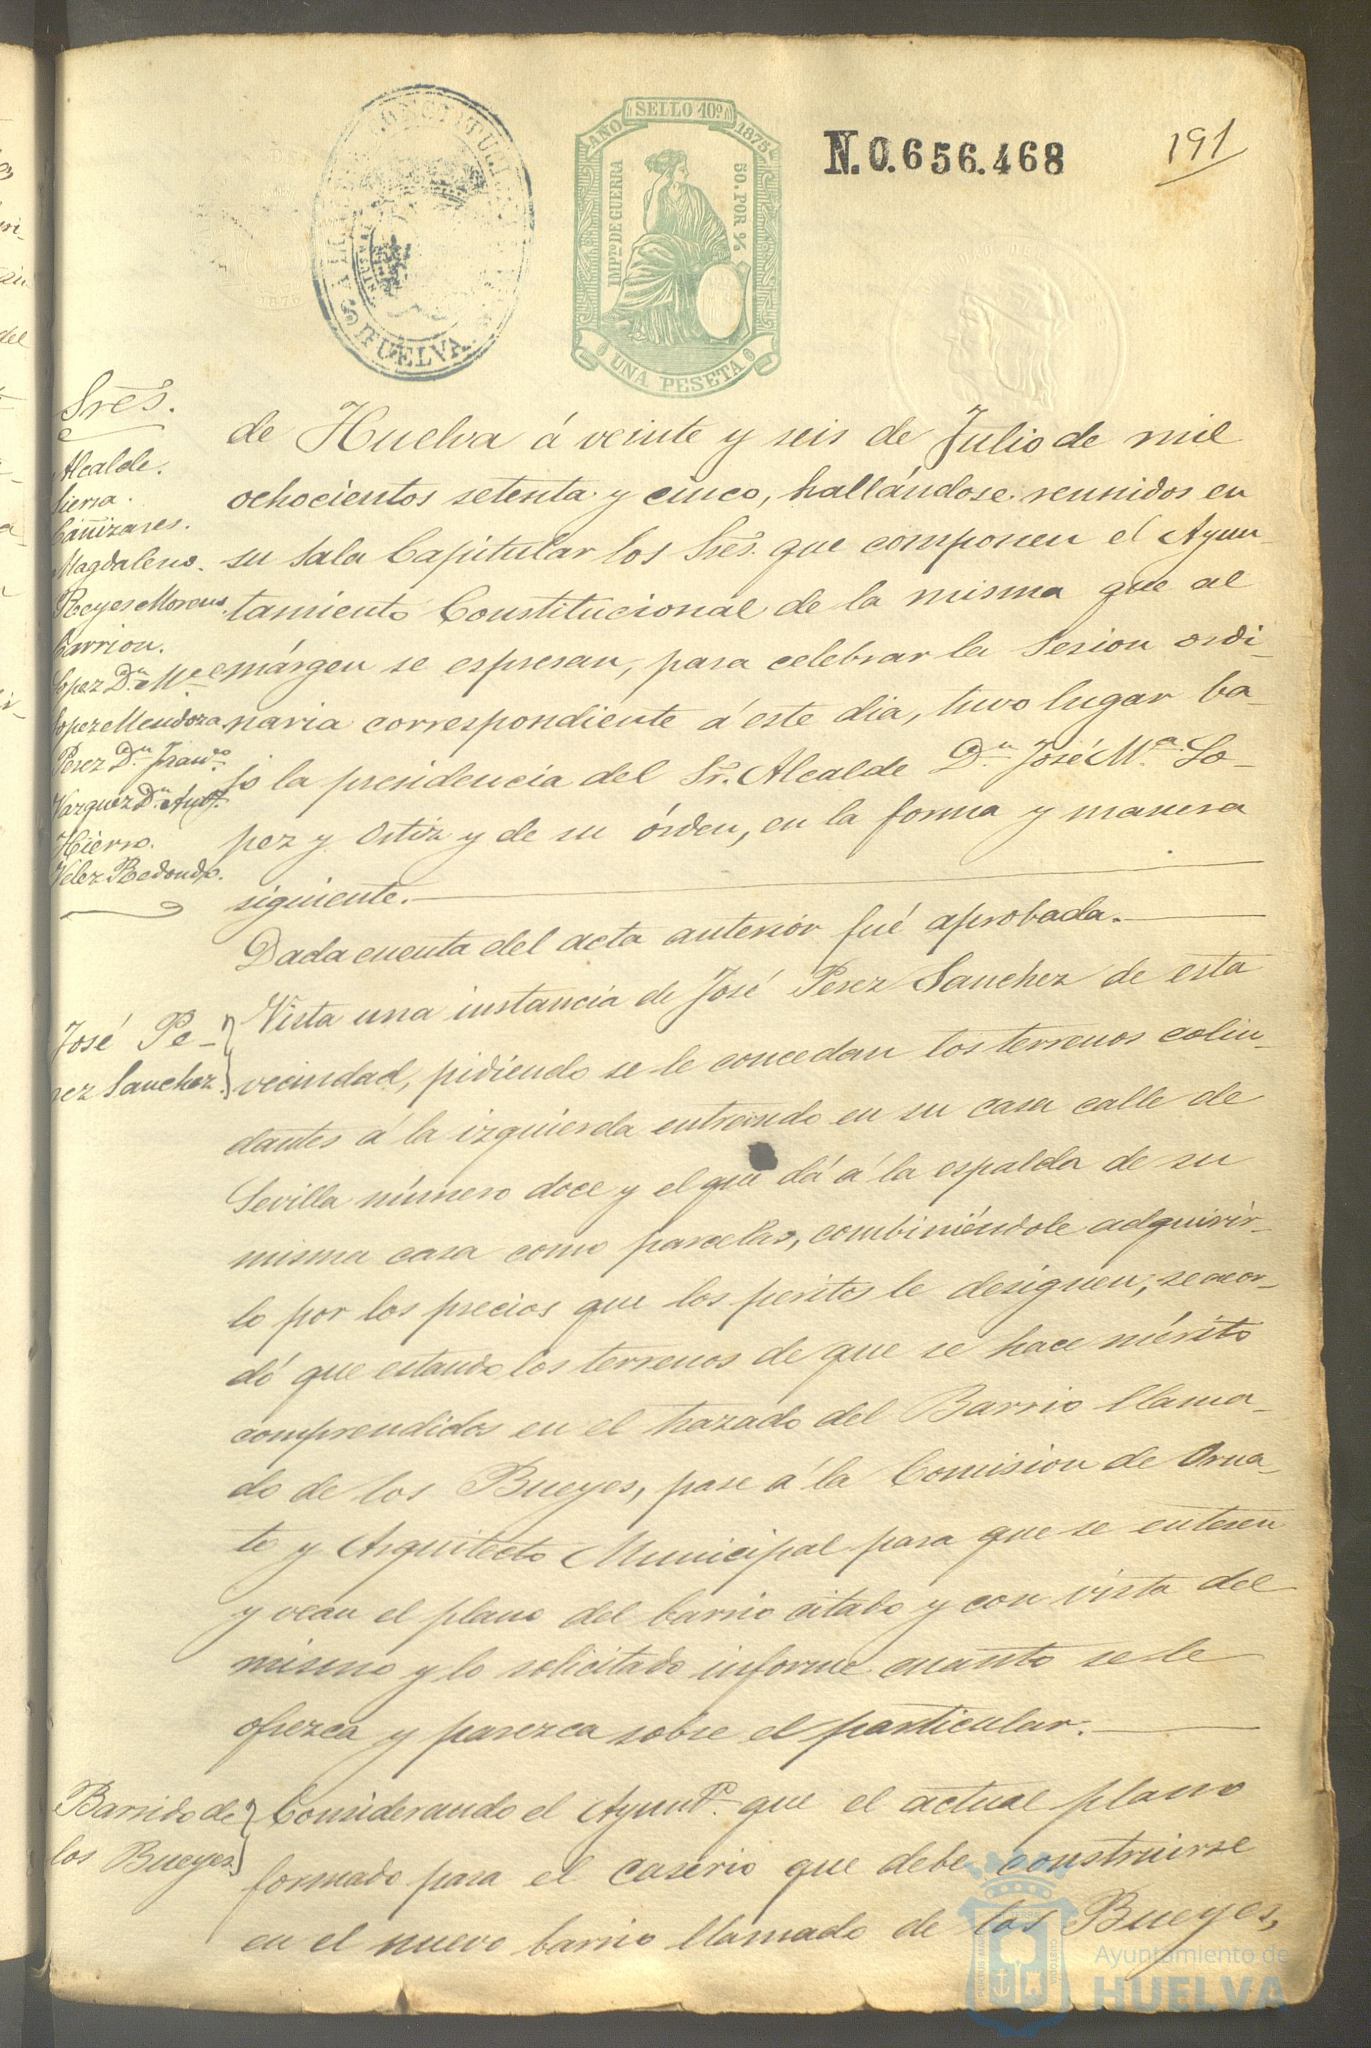 AÑO SELLO 10º 1875
IMPto DE GUERRA
50. POR %
UNA PESETA
HUELVA
N.0.656.468
191
Sres.
Alcalde.
Sierra.
Cañizares.
Magdaleno.
Reyes Moreno.
Carrion.
Lopez Dn Me
Lopez Mendoza
Perez Dn Franco
Vazquez Dn Anto
Hierro.
Velez Redondo.
de Huelva á veinte y seis de Julio de mil
ochocientos setenta y cinco, hallándose reunidos en
su Sala Capitular los Sres. que componen el Ayun-
tamiento Constitucional de la misma que al
márgen se espresan, para celebrar la Sesion ordi-
naria correspondiente á este dia, tuvo lugar ba-
jo la presidencia del Sr. Alcalde Dn José Ma Lo-
pez y Ortiz y de su órden, en la forma y manera
siguiente.
Dada cuenta del acta anterior fué aprobada.
José Pe-
rez Sanchez
Vista una instancia de José Perez Sanchez de esta
vecindad, pidiendo se le concedan los terrenos colin-
dantes á la izquierda entrando en su casa calle de
Sevilla número doce y el que dá á la espalda de su
misma casa como parcelas, combiniéndole adquirir-
lo por los precios que los peritos le designen; se acor-
dó que estando los terrenos de que se hace mérito
comprendidos en el trazado del Barrio llama-
do de los Bueyes, pase á la Comision de Orna-
to y Arquitecto Municipal para que se enteren
y vean el plano del barrio citado y con vista del
mismo y lo solicitado informe cuanto se le
ofrezca y parezca sobre el particular.
Barrido de
los Bueyes
Considerando el Ayunto que el actual plano
formado para el caserio que debe construirse
en el nuevo barrio llamado de los Bueyes,
Ayuntamiento de
HUELVA